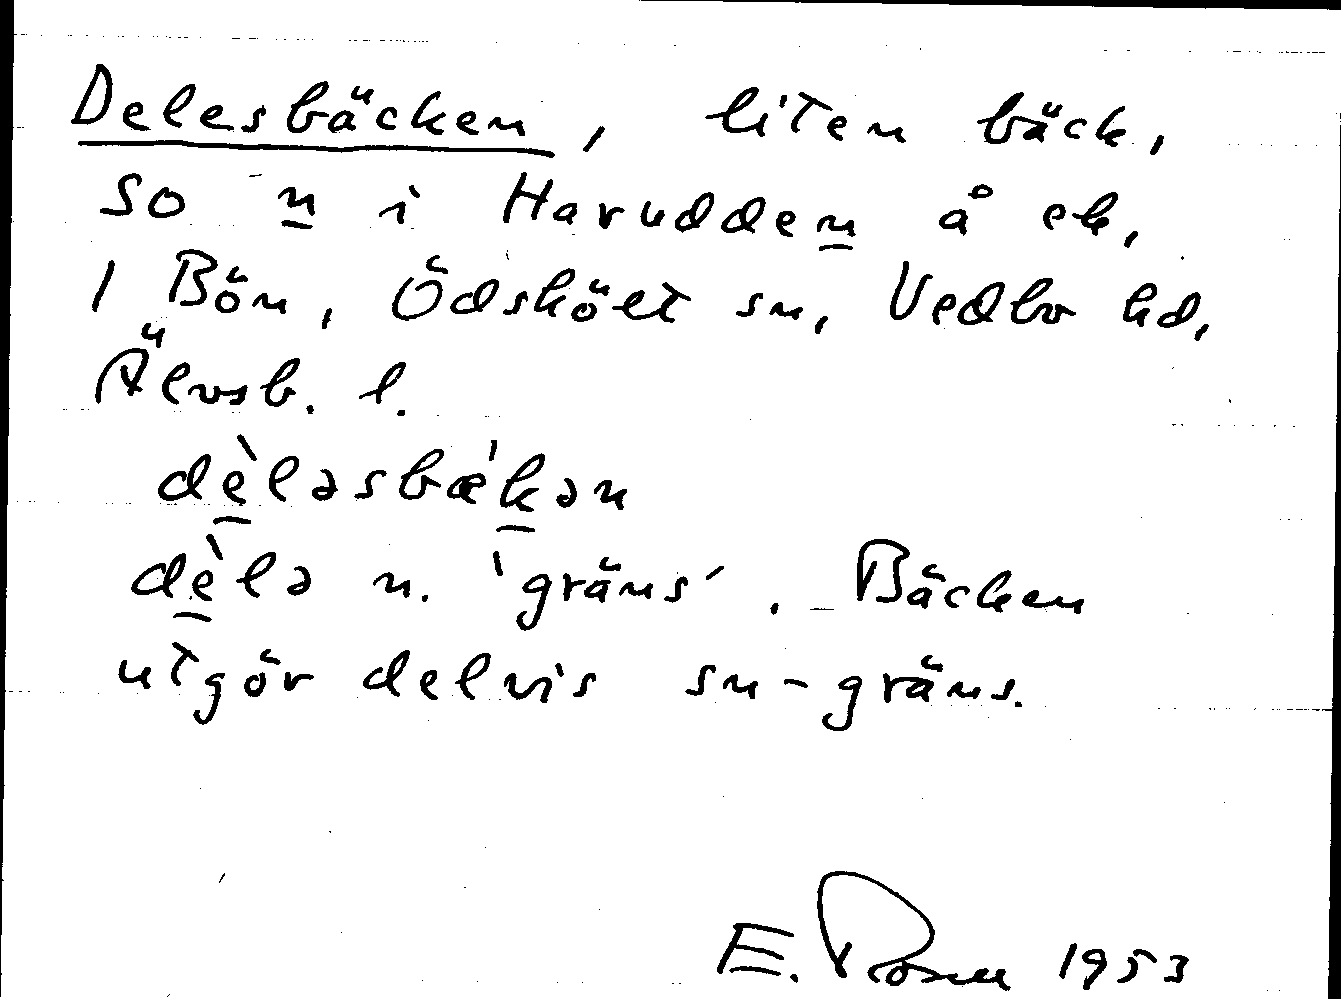 Delesbäcken, liten bäck,
SO n i Harudden å ek,
1 Bön, Ödskölt sn, Vedbo hd,
Älvsb. l.
dè̱ləsbæ'ḵən
dè̱lə n. 'gräns'. Bäcken
utgör delvis sn-gräns.
E. Rosen 1953